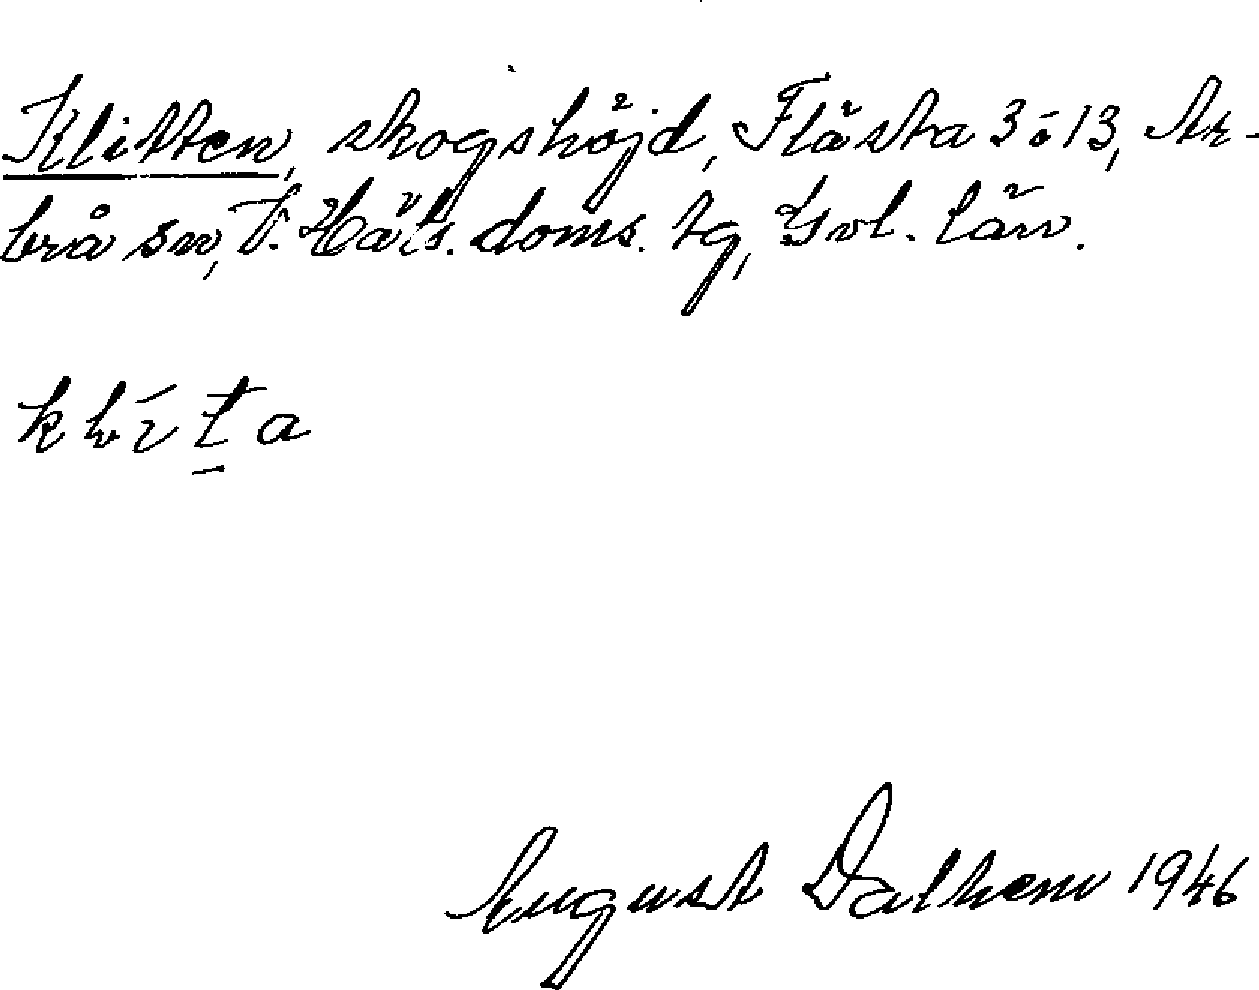 Klitten, skogshöjd, Flästa 3 o 13, Ar-
brå sn, V. Häls. doms. tg, Gvl. län.
August Dalhem 1946